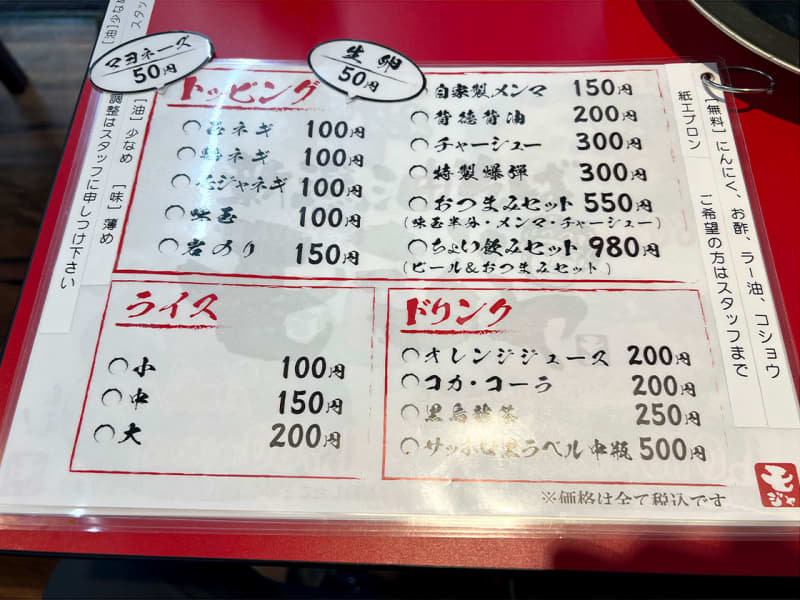 マヨネーズ
50円
生卵
50円
トッピング
ネギ 100円
ネギ 100円
ジャネギ 100円
味玉 100円
岩のり 150円
自家製メンマ 150円
背徳背油 200円
チャーシュー 300円
特製爆弾 300円
おつまみセット 550円
(味玉半分・メンマ・チャーシュー)
ちょい飲みセット 980円
(ビール&おつまみセット)
ライス
小 100円
中 150円
大 200円
ドリンク
オレンジジュース 200円
コカ・コーラ 200円
黒烏龍茶 250円
サッポロ黒ラベル 中瓶 500円
※価格は全て税込です
[油]少なめ [味]薄め
調整はスタッフに申しつけ下さい
[無料]にんにく、お酢、ラー油、コショウ
紙エプロン ご希望の方はスタッフまで
[油]少なめ
スタッ
モジャ